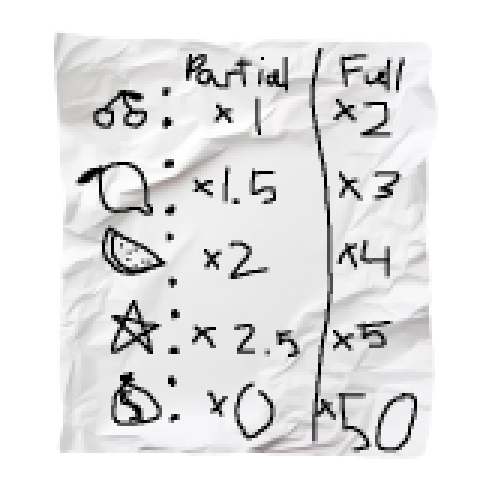 Partial Full
: x1 x2
: x1.5 x3
: x2 x4
: x2.5 x5
$: x0 x50